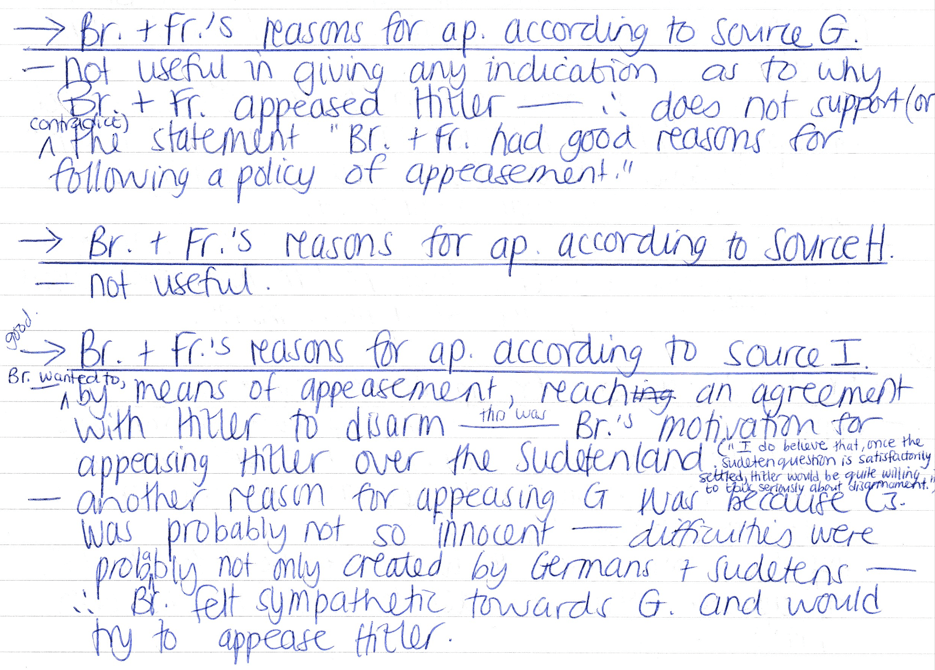 → Br. + Fr.'s reasons for ap. according to source G.
— Not useful in giving any indication as to why
Br. + Fr. appeased Hitler — ∴ does not support (or
contradict)
^ the statement "Br. + Fr. had good reasons for
following a policy of appeasement."
→ Br. + Fr.'s reasons for ap. according to source H.
— not useful.
good.
→ Br. + Fr.'s reasons for ap. according to source I.
Br. wanted to,
^ by means of appeasement, reaching an agreement
with Hitler to disarm — this was Br.'s motivation for
appeasing Hitler over the Sudetenland.
("I do believe that, once the
sudeten question is satisfactorily
settled, Hitler would be quite willing
to talk seriously about disarmament."
— another reason for appeasing G was because Cz.
was probably not so innocent — difficulties were
probably not only created by Germans + Sudetens —
∴ Br. felt sympathetic towards G. and would
try to appease Hitler.